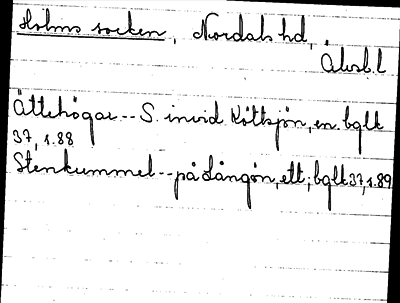 Holms socken, Nordals hd,
Älvsb.l
Ättehögar -- S. invid Köttsjön, en bglt
37, 1.88
Stenkummel -- på Långön, ett; bglt 37, 1.89